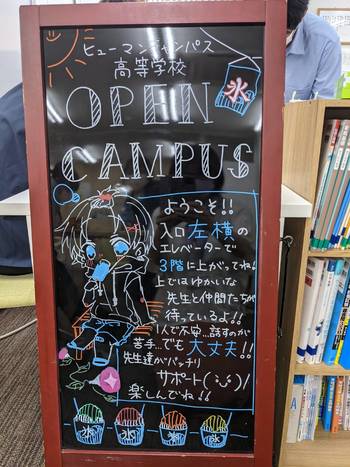 ヒューマンキャンパス
高等学校
氷
OPEN
CAMPUS
ようこそ!!
入口左横の
エレベーターで
3階に上がってね!
上ではゆかいな
先生と仲間たちが
待っているよ!!
1人で不安…話すのが
苦手…でも大丈夫!!
先生達がバッチリ
サポート(¨̮)/
楽しんでね!!
氷 氷 氷 氷